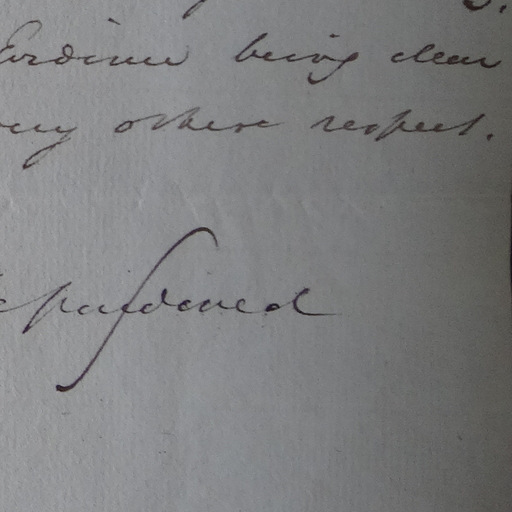 Evidence being clear
other respect.
pardoned